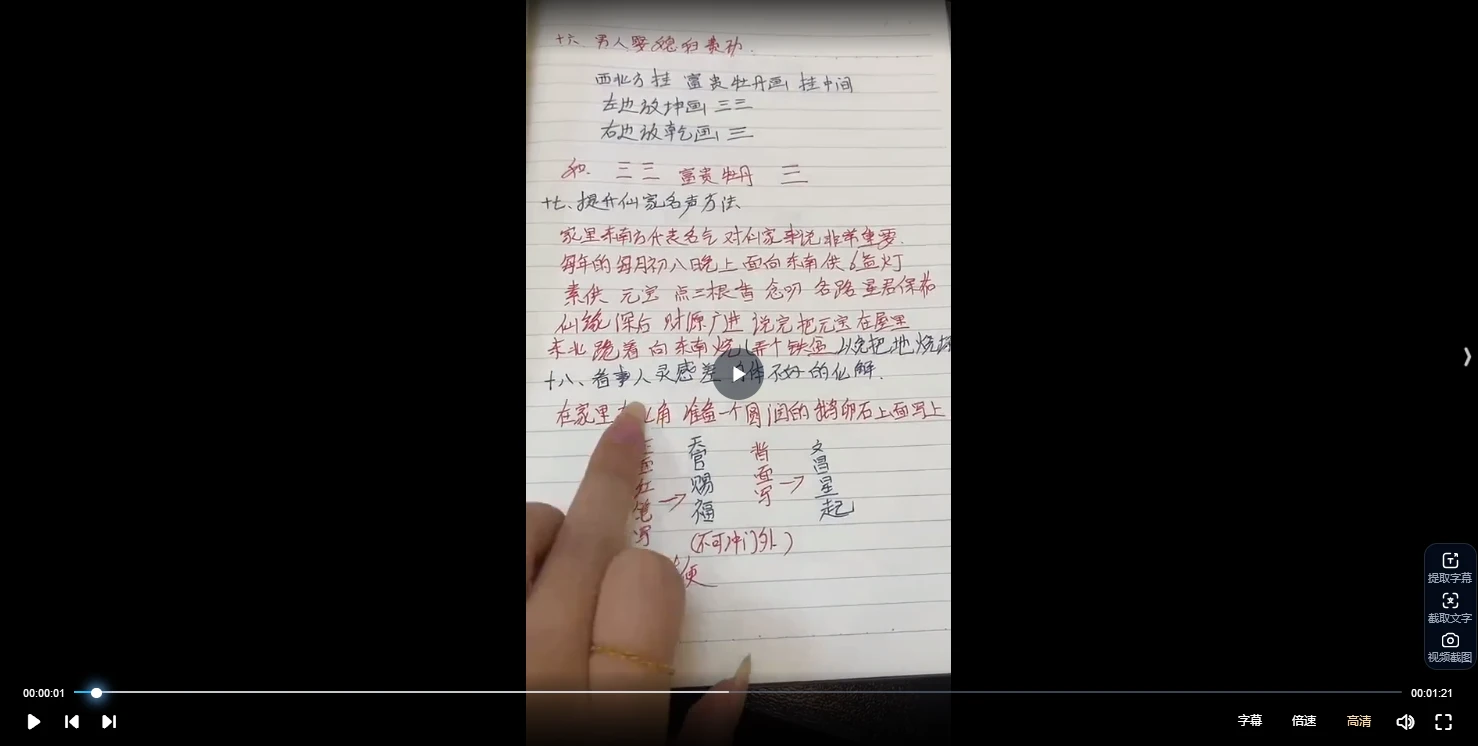 十六、男人娶媳妇贵孙.
西北方挂 富贵牡丹画 挂中间
左边放坤画 三三
右边放乾画 三
和. 三三 富贵牡丹 三
十七、提升仙家名声方法
家里东南方代表名气 对仙家来说非常重要.
每年的每月初八日晚上 面向东南供6盏灯
素供 元宝 点三根香 念叨 各路星君保佑
仙缘深后 财源广进 说完把元宝在屋里
东北跪着向东南烧(弄个铁 以免把地烧坏
十八、看事人灵感差 体不好的化解.
在家里 角 准备一个圆润的鹅卵石上面写上
正面红笔写→
天官赐福
背面写→
文昌星起
(不可冲门外)
便
提取字幕
截取文字
视频截图
00:00:01
00:01:21
字幕
倍速
高清